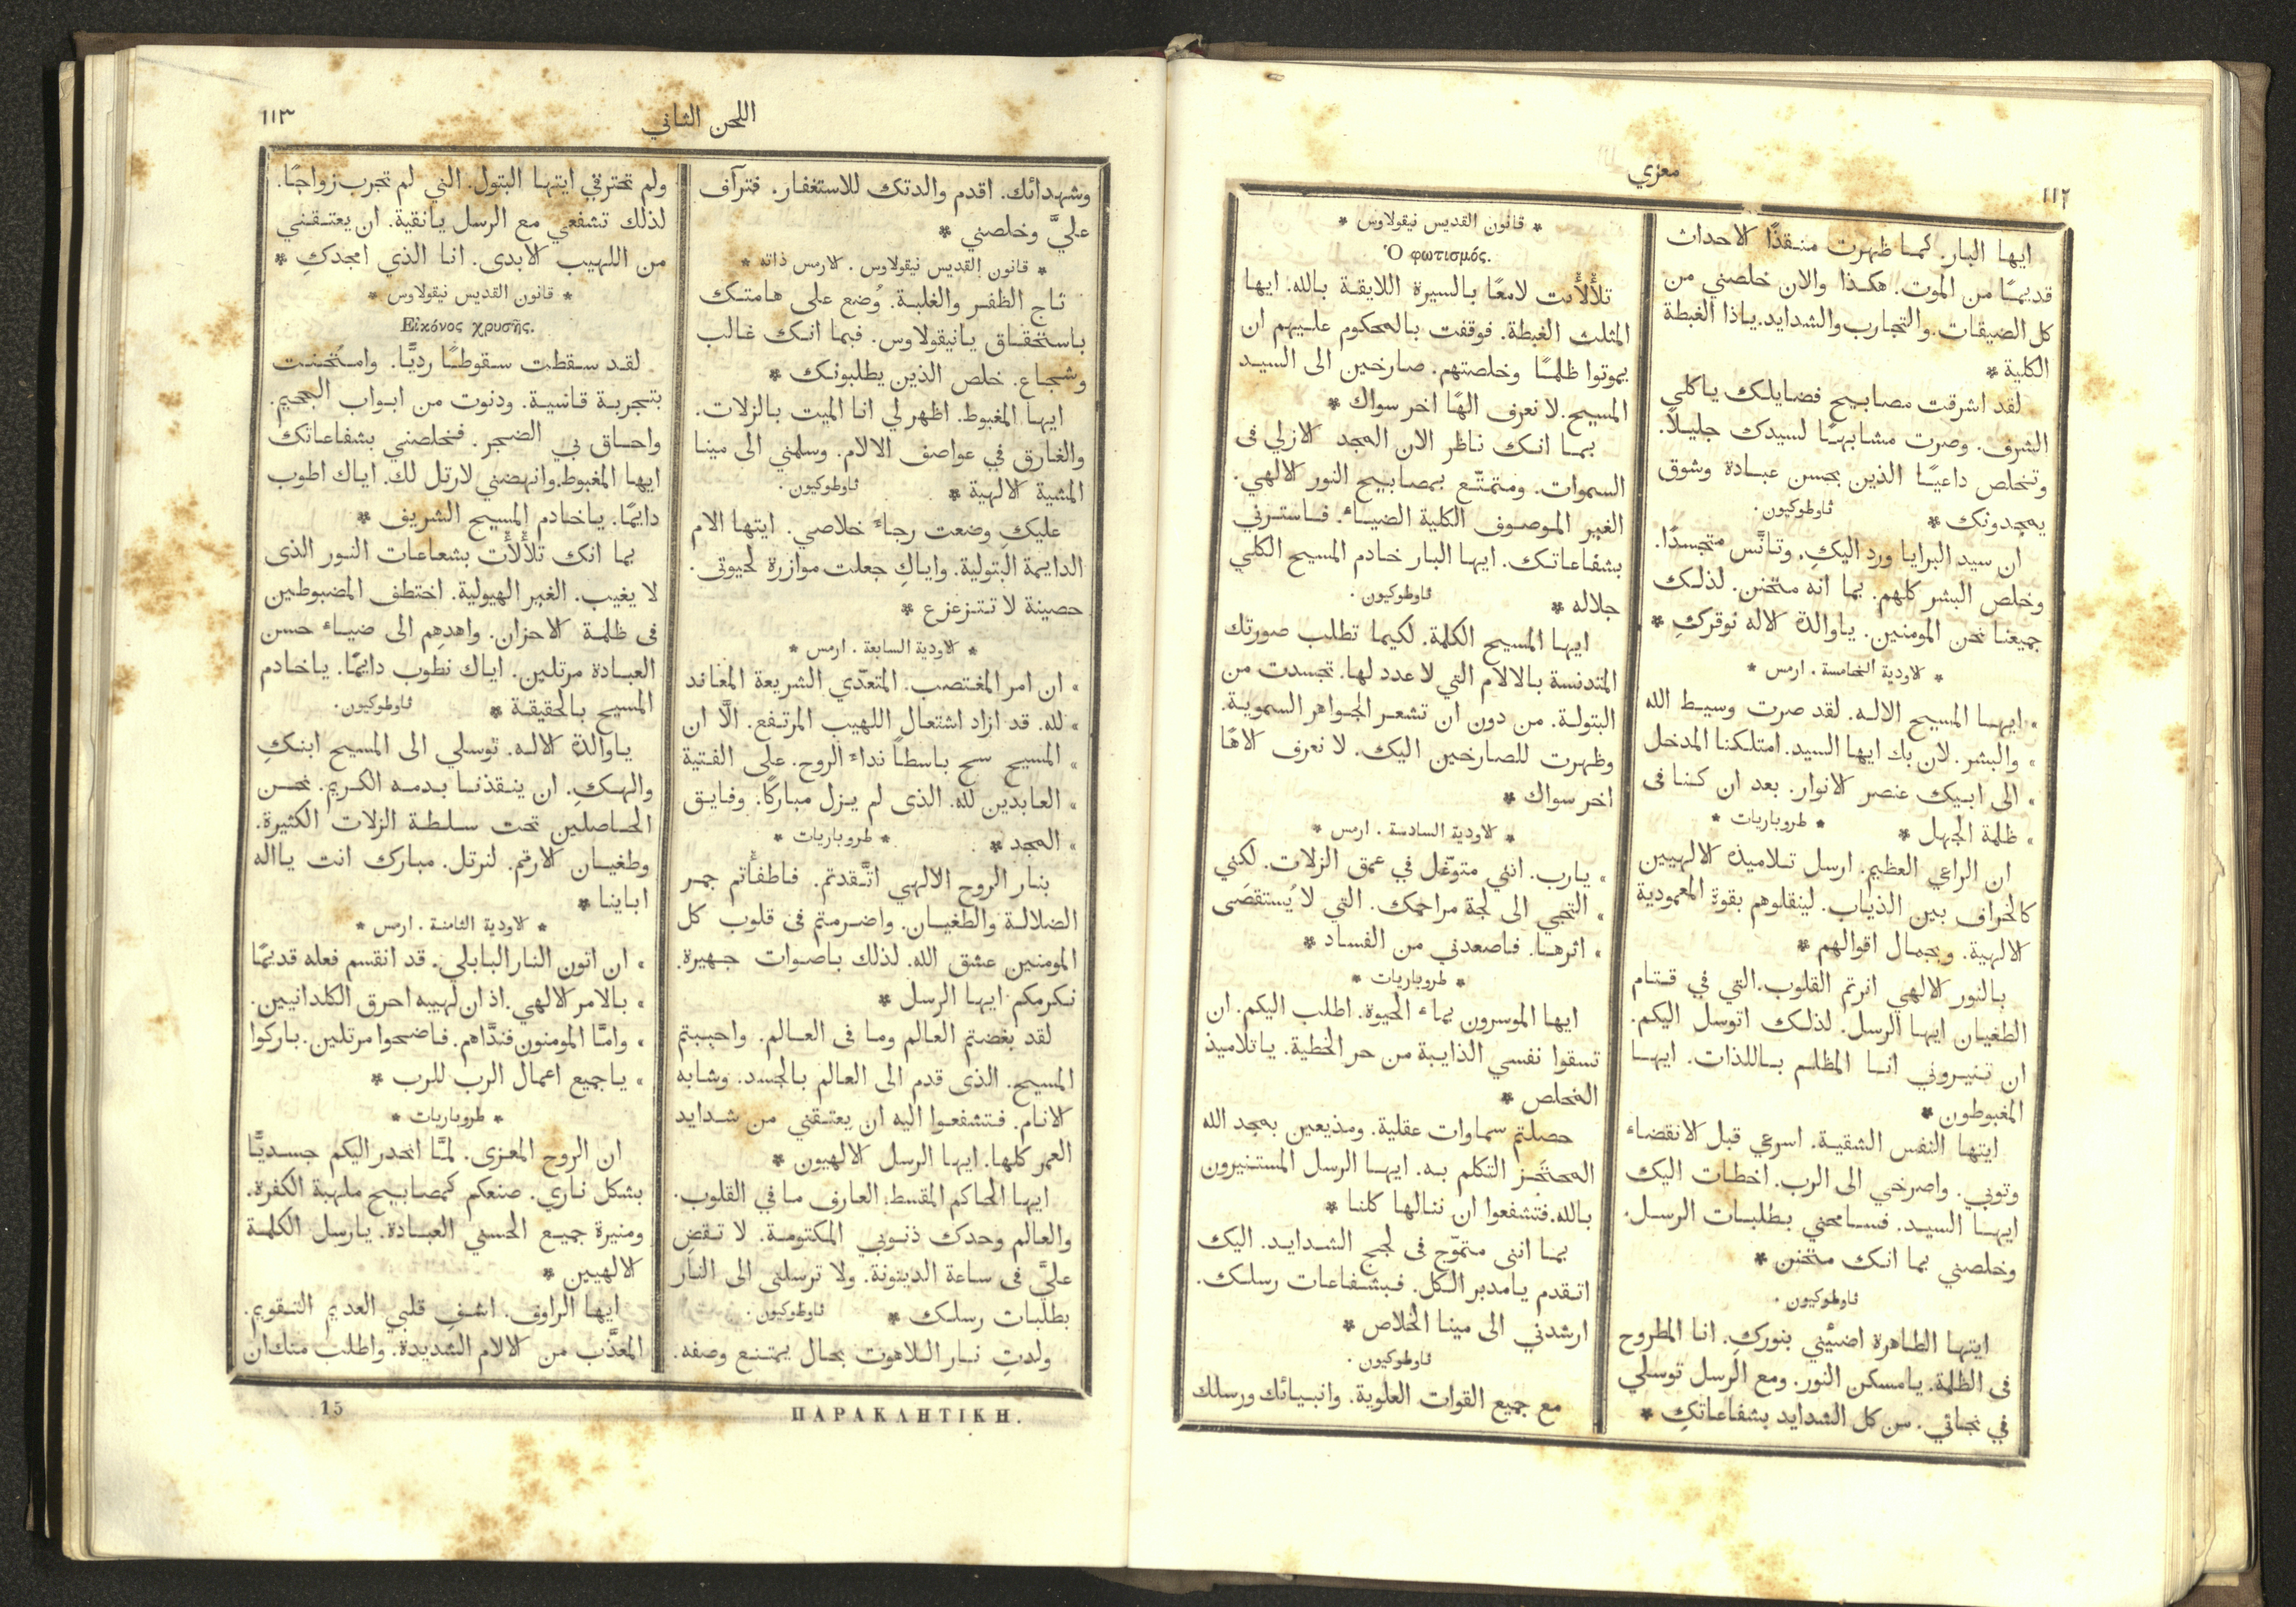 ١١٢
معزي
ايها البار. كما ظهرت منقذًا لاحداث
قديمًا من الموت. هكذا والان خلصني من
كل الضيقات. والتجارب والشدايد. ياذا الغبطة
الكلية *
لقد اشرقت مصابيح فضايلك ياكلي
الشرف. وصرت مشابهًا لسيدك جليلاً.
وتخلص داعيًا الذين بحسن عبادة وشوق
يمجدونك * ثاوطوكيون.
ان سيد البرايا ورد اليكِ. وتانَّس متجسدًا.
وخلص البشر كلهم. بما انه متحنن. لذلك
جميعنا نحن المومنين. ياوالدة الاله نوقركِ *
* الاودية الخامسة. ارمس *
» ايها المسيح الاله. لقد صرت وسيط الله
» والبشر. لان بك ايها السيد. امتلكنا المدخل
» الى ابيك عنصر الانوار. بعد ان كنا فى
» ظلمة الجهل * * طروباريات *
ان الراعي العظيم. ارسل تلاميذه الالهيين
كالخراف بين الذياب. لينقلوهم بقوة المعمودية
الالهية. وبجمال اقوالهم *
بالنور الالهي انرتم القلوب. التي في قتام
الطغيان ايها الرسل. لذلك اتوسل اليكم.
ان تنيروني انا المظلم باللذات. ايها
المغبوطون *
ايتها النفس الشقية. اسرعي قبل الانقضاء
وتوبي. واصرخي الى الرب. اخطات اليك
ايها السيد. فسامحني بطلبات الرسل.
وخلصني بما انك متحنن *
ثاوطوكيون.
ايتها الطاهرة اضيئيني بنوركِ. انا المطروح
فى الظلمة. يامسكن النور. ومع الرسل توسلي
في نجاتي. من كل الشدايد بشفاعاتكِ *
* قانون القديس نيقولاوس *
Ὁ φωτισμός.
تلألأت لامعًا بالسيرة اللايقة بالله. ايها
المثلث الغبطة. فوقفت بالمحكوم عليهم ان
يموتوا ظلمًا وخلصتهم. صارخين الى السيد
المسيح. لا نعرف الهًا اخر سواك *
بما انك ناظر الان المجد الازلي فى
السموات. ومتمتّع بمصابيح النور الالهي.
الغير الموصوف الكلية الضياء. فاسترني
بشفاعاتك. ايها البار خادم المسيح الكلي
جلاله * ثاوطوكيون.
ايها المسيح الكلمة. لكيما تطلب صورتك
المتدنسة بالالام التي لا عدد لها. تجسدت من
البتولة. من دون ان تشعر الجواهر السموية.
وظهرت للصارخين اليك. لا نعرف الاهًا
اخر سواك *
* الاودية السادسة. ارمس *
» يارب. انني متوغّل في عمق الزلات. لكني
» التجي الى لجة مراحمك. التي لا يُستقصَى
» اثرها. فاصعدني من الفساد *
* طروباريات *
ايها الموسرون بماء الحيوة. اطلب اليكم. ان
تسقوا نفسي الذايبة من حر الخطية. ياتلاميذ
المخلص *
حصلتم سماوات عقلية. ومذيعين بمجد الله
المحتجز التكلم به. ايها الرسل المستنيرون
بالله. فتشفعوا ان ننالها كلنا *
بما انني متموّج فى لجج الشدايد. اليك
اتقدم يامدبر الكل. فبشفاعات رسلك.
ارشدني الى مينا الخلاص *
ثاوطوكيون.
مع جميع القوات العلوية. وانبيائك ورسلك
اللحن الثاني
١١٣
وشهدائك. اقدم والدتك للاستغفار. فترآف
عليَّ وخلصني *
* قانون القديس نيقولاوس. الارمس ذاته *
تاج الظفر والغلبة. وُضع على هامتك
باستحقاق يانيقولاوس. فبما انك غالب
وشجاع. خلص الذين يطلبونك *
ايها المغبوط. اظهر لي انا الميت بالزلات.
والغارق في عواصف الالام. وسلمني الى مينا
المشية الالهية * ثاوطوكيون.
عليكِ وضعت رجاء خلاصي. ايتها الام
الدايمة البتولية. واياكِ جعلت موازرة لحيوتى.
حصينة لا تتزعزع *
* الاودية السابعة. ارمس *
» ان امر المغتصب. المتعدّي الشريعة المعاند
» لله. قد ازاد اشتعال اللهيب المرتفع. الَّا ان
» المسيح سح باسطاً نداء الروح. على الفتية
» العابدين لله. الذى لم يزل مباركًا. وفايق
» المجد * * طروباريات *
بنار الروح الالهي اتَّقدتم. فاطفأتم جمر
الضلالة والطغيان. واضرمتم فى قلوب كل
المومنين عشق الله. لذلك باصوات جهيرة.
نكرمكم ايها الرسل *
لقد بغضتم العالم وما فى العالم. واحببتم
المسيح. الذى قدم الى العالم بالجسد. وشابه
الانام. فتشفعوا اليه ان يعتقني من شدايد
العمر كلها. ايها الرسل الالهيون *
ايها الحاكم المقسط. العارف ما في القلوب.
والعالم وحدك ذنوبي المكتومة. لا تقضِ
عليَّ فى ساعة الدينونة. ولا ترسلني الى النار
بطلبات رسلك * ثاوطوكيون.
ولدتِ نار اللاهوت بحال يمتنع وصفه.
ولم تحترقي ايتها البتول. التي لم تجرب زواجًا.
لذلك تشفعي مع الرسل يانقية. ان يعتقني
من اللهيب الابدى. انا الذي امجدكِ *
* قانون القديس نيقولاوس *
Εἰκόνος χρυσῆς.
لقد سقطت سقوطًا رديًّا. وامتُحنت
بتجربة قاسية. ودنوت من ابواب الجحيم.
واحاق بي الضجر. فخلصني بشفاعاتك
ايها المغبوط. وانهضني لارتل لك. اياك اطوب
دايمًا. ياخادم المسيح الشريف *
بما انك تلألأت بشعاعات النور الذى
لا يغيب. الغير الهيولية. اختطف المضبوطين
فى ظلمة الاحزان. واهدِهِم الى ضياء حسن
العبادة مرتلين. اياك نطوب دايمًا. ياخادم
المسيح بالحقيقة * ثاوطوكيون.
ياوالدة الاله. توسلي الى المسيح ابنكِ
والهكِ. ان ينقذنا بدمه الكريم. نحن
الحاصلين تحت سلطة الزلات الكثيرة.
وطغيان الارقم. لنرتل. مبارك انت يااله
اباينا *
* الاودية الثامنة. ارمس *
» ان اتون النار البابلي. قد انقسم فعله قديمًا
» بالامر الالهي. اذ ان لهيبه احرق الكلدانيين.
» وامَّا المومنون فندَّاهم. فاضحوا مرتلين. باركوا
» ياجميع اعمال الرب للرب *
* طروباريات *
ان الروح المعزى. لمَّا انحدر اليكم جسديًّا
بشكل ناري. صنعكم كمصابيح ملهبة الكفرة.
ومنيرة جميع الحسني العبادة. يارسل الكلمة
الالهيين *
ايها الراوف. اشفِ قلبي العديم التقويم.
المعذَّب من الالام الشديدة. واطلب منك ان
ΠΑΡΑΚΛΗΤΙΚΗ.
15